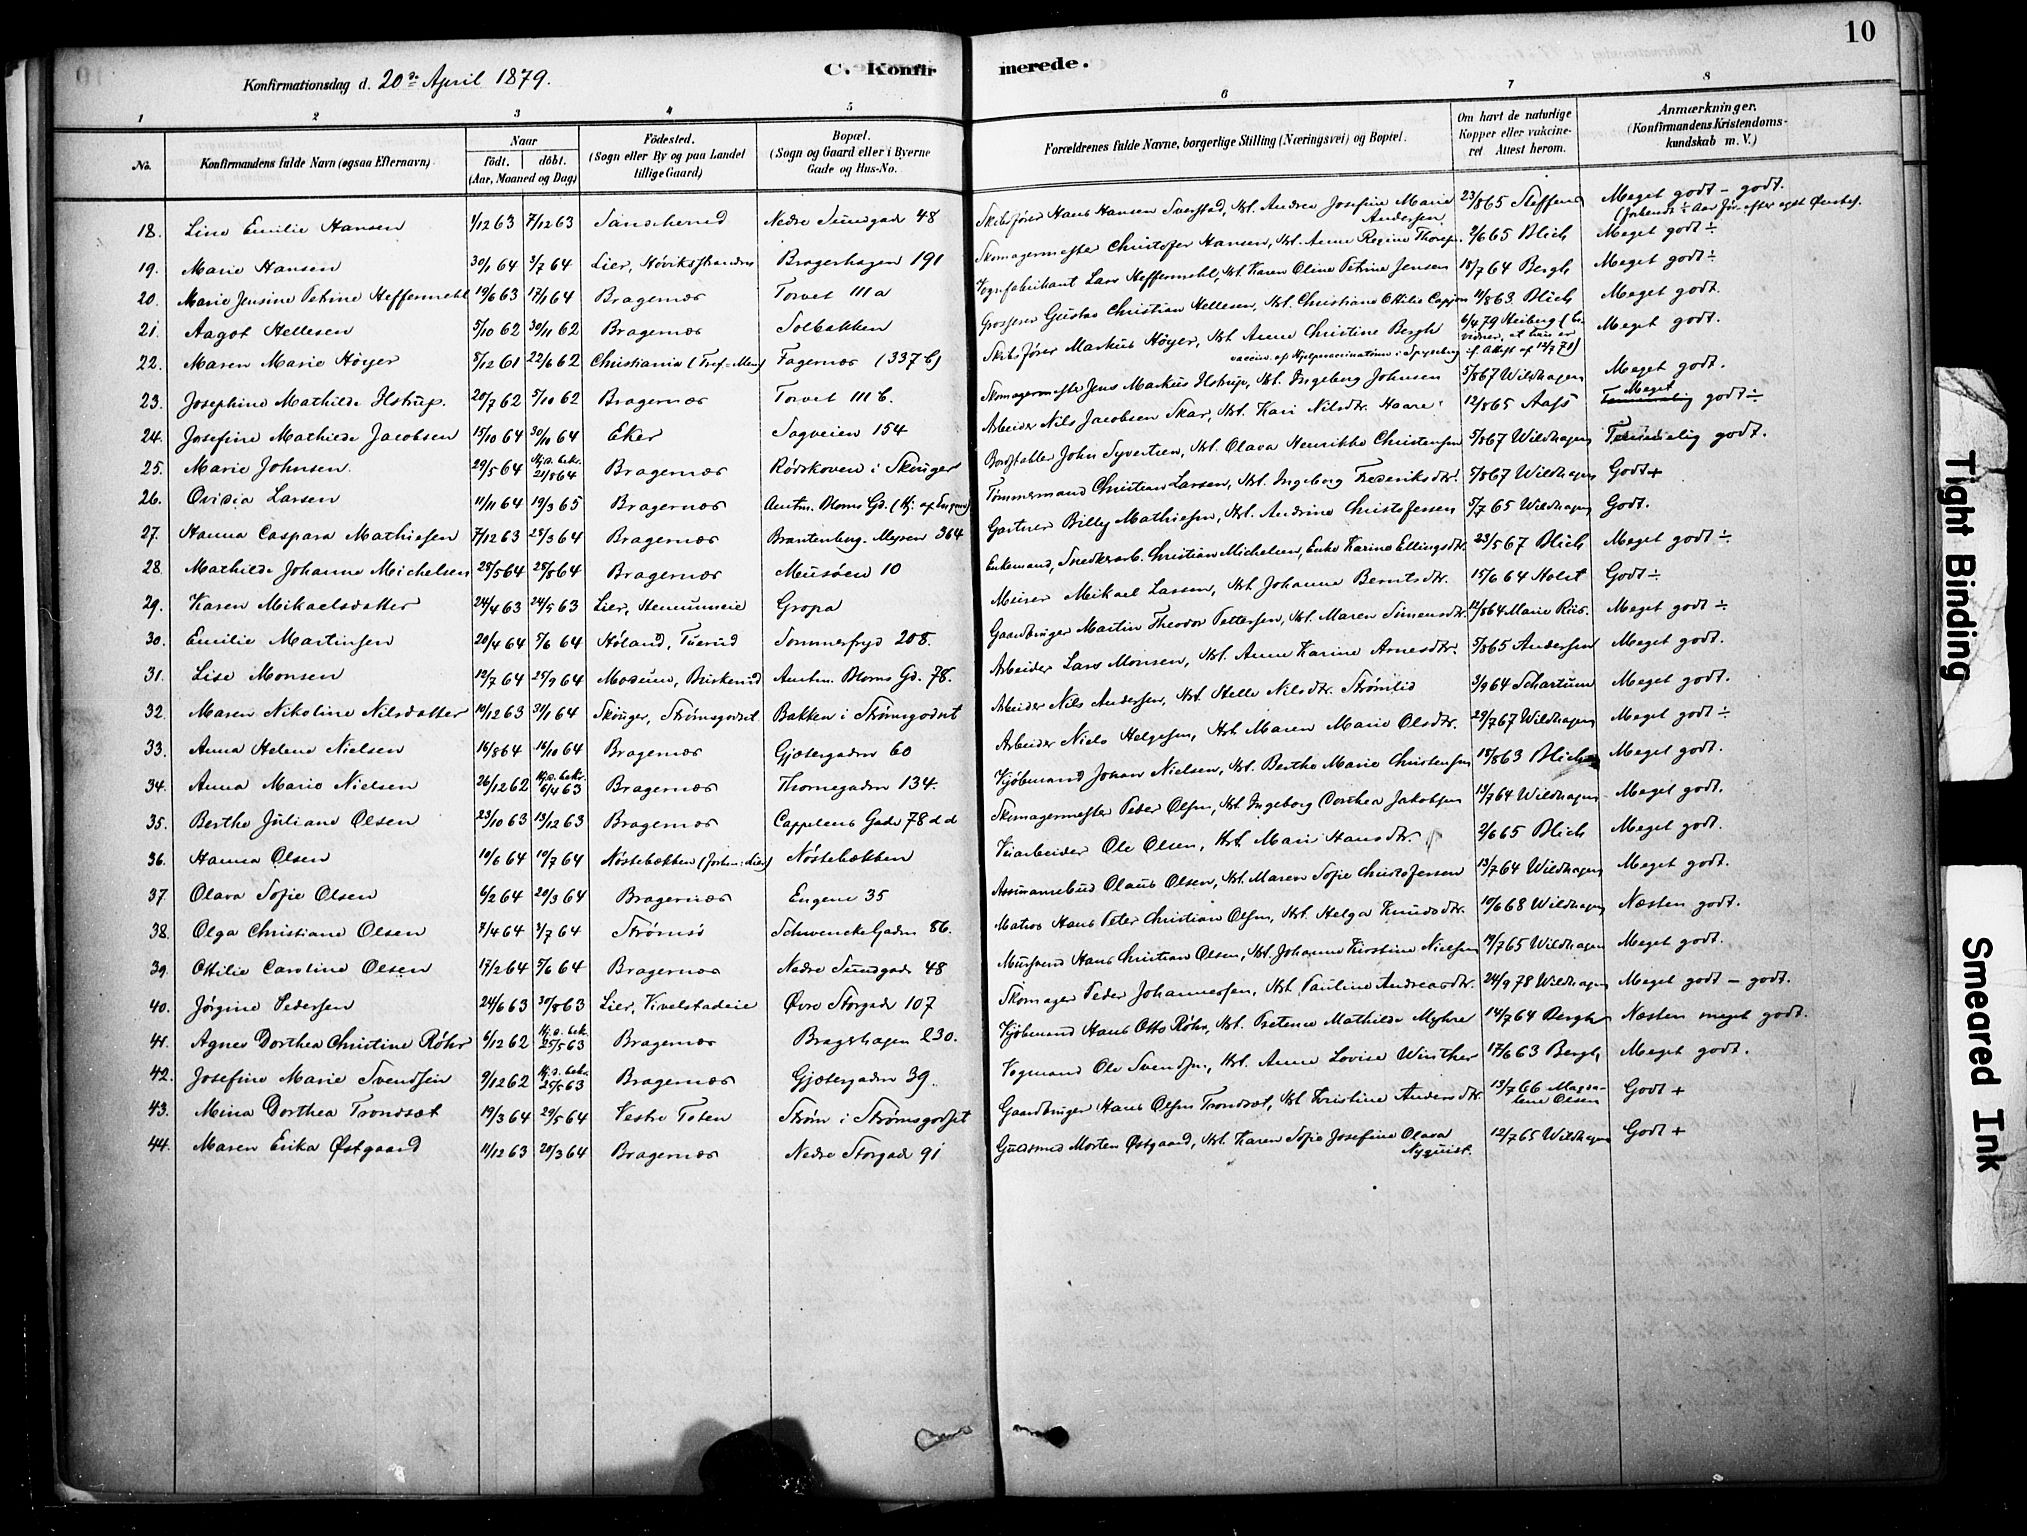 10
C. Konfirmerede.
Konfirmationsdag d. 20de April 1879.
1 2 3 4 5 6 7 8
No. Konfirmandens fulde Navn (ogsaa Efternavn). Naar födt. döbt. (Aar, Maaned og Dag) Födested. (Sogn eller By og paa Landet tillige Gaard) Bopæl. (Sogn og Gaard eller i Byerne Gade og Hus-No. Forældrenes fulde Navne, borgerlige Stilling (Næringsvei) og Bopæl. Om havt de naturlige Kopper eller vakcineret Attest herom. Anmærkninger. (Konfirmandens Kristendomskundskab m. V.)
18. Lina Emilie Hansen 1/12 63 7/12 63 Sandeherred Nedre Sundgade 48 Skibsfører Hans Hansen Sverstad, Kst. Andrea Josefine Marie Andersen 23/8 65 Steffens Meget godt - godt.
19. Marie Hansen 30/1 64 3/7 64 Lier, Høvikstranden Bragerhagen 191 Skomagermester Christofer Hansen, Kst. Anne Regine Thores. 2/6 65 Blich Meget godt ÷
20. Marie Jensine Petrine Heffermehl 19/6 63 17/1 64 Bragernæs Torvet 111a Vognfabrikant Lars Heffermehl, Kst. Karen Oline Petrine Jensen 18/7 64 Bergh Meget godt ÷
21. Aagot Hellesen 5/10 62 30/11 62 Bragernæs Solbakken Grosserer Gustav Christian Hellesen, Kst. Christiane Ottilie Cappelen 11/8 63 Blich Meget godt.
22. Maren Marie Höyer 8/12 61 22/6 62 Christiania (Tref. Men) Fagernæs (337 b) Skibsfører Markus Höyer, Kst. Anne Christine Bergh 6/4 79 Heiberg Meget godt.
23. Josephine Mathilde Ilstrup. 20/7 62 5/10 62 Bragernæs Torvet 111 b. Skomagermester Jens Markus Ilstrup, Kst. Ingeborg Johnsen 5/8 67 Wildhagen Meget godt.
24. Josefine Mathilde Jacobsen 15/10 64 30/11 64 Eker Sagveien 154 Arbeider Nils Jacobsen Skar, Kst. Kari Nilsdtr. Haare 12/8 65 Aass Meget godt ÷
25. Marie Johnsen 29/5 64 Hj.d. bekr. 21/8 64 Bragernæs Rødskoven i Skouger Bordstabler John Syvertsen, Kst. Olava Henrikke Christensen 5/8 67 Wildhagen Temmelig godt.
26. Ovidia Larsen 11/11 64 19/3 65 Bragernæs Amtm. Bloms Gd. Tømmermand Christian Larsen, Kst. Ingeborg Frederiksdtr. 5/8 67 Wildhagen Godt +
27. Hanna Caspara Mathiesen 7/12 63 28/3 64 Bragernæs Brantenborg. 364 Gartner Billy Mathiesen, Kst. Andrine Christofersen 5/7 65 Wildhagen Godt.
28. Mathilde Johanne Michelsen 28/5 64 28/8 64 Bragernæs Musøen 10 Enkemand, Snedkerarb. Christian Michelsen, Enke Karine Ellingsdtr. 23/5 67 Blich Meget godt ÷
29. Karen Mikaelsdatter 24/4 63 24/5 63 Lier, Gropa Murer Mikael Larsen, Kst. Johanne Berntsdtr. 15/6 64 Holst Godt ÷
30. Emilie Martinsen 20/4 64 5/6 64 Høland, Tuerud Sommerfryd 208. Gaardbruger Martin Theodor Pettersen, Kst. Maren Simensdtr. 12/8 64 Marie Riis. Meget godt ÷
31. Lise Monsen 12/7 64 25/9 64 Modum, Buskerud Amtm. Bloms Gd. 78. Arbeider Lars Monsen, Kst. Anne Karine Arnesdtr. 5/8 65 Andersen Meget godt.
32. Maren Nikoline Nilsdatter 19/12 63 31/1 64 Skouger, Strømsgodset Bakken i Strømsgodset Arbeider Nils Andersen, Kst. Stelle Nilsdtr. Strømlid 3/9 64 Schartum Meget godt.
33. Anna Helene Nielsen 16/8 64 16/10 64 Bragernæs Gjetergaden 60 Arbeider Niels Helgesen, Kst. Maren Marie Olsdtr. 29/7 67 Wildhagen Meget godt ÷
34. Anna Marie Nielsen 26/12 62 Hj.d. bekr. 6/4 63 Bragernæs Thornegaden 134. Kjöbmand Johan Nielsen, Kst. Berthe Marie Christensen 18/8 63 Blich Meget godt.
35. Berthe Juliane Olsen 23/10 63 13/12 63 Bragernæs Cappelens Gade 78 d d Skomagermester Peder Olsen, Kst. Ingeborg Dorthea Jakobsen 13/7 64 Wildhagen Meget godt.
36. Hanna Olsen 10/6 64 10/7 64 Nöstebækken Nöstebækken Veiarbeider Ole Olsen, Kst. Mari Hansdtr. 2/6 65 Blich Meget godt.
37. Olava Sofie Olsen 6/2 64 20/3 64 Bragernæs Engene 35 Olaus Olsen, Kst. Maren Sofie Christofersen 13/7 64 Wildhagen Meget godt.
38. Olga Christiane Olsen 7/4 64 3/7 64 Strømsø Schwencke Gaden 86. Matros Hans Peter Christian Olsen, Kst. Helga Knudsdtr. 10/6 68 Wildhagen Næsten godt.
39. Ottilie Caroline Olsen 17/2 64 5/6 64 Bragernæs Nedre Sundgade 48 Murer Hans Christian Olsen, Kst. Johanne Kirstine Nielsen 19/7 65 Wildhagen Meget godt.
40. Jørgine Pedersen 24/6 63 30/8 63 Lier, Kivelstadeie Øvre Storgade 107 Skomager Peder Johannessen, Kst. Pauline Andreasdtr. 24/9 78 Wildhagen Meget godt - godt.
41. Agnes Dorthea Christine Röhr 6/12 62 Hj.d. bek. 25/5 63 Bragernæs Bragerhagen 230. Kjöbmand Hans Otto Röhr, Kst. Mathilde Myhre 14/7 64 Bergh Næsten meget godt.
42. Josefine Marie Svendsen 9/12 62 Hj.d. bekr. 25/5 63 Bragernæs Gjetergaden 39. Vognmand Ole Svendsen, Kst. Anne Lovise Winther 17/6 63 Bergh Meget godt.
43. Mina Dorthea Trondsæt 19/3 64 29/5 64 Vestre Toten Strøm i Strømsgodset Gaardbruger Hans Olsen Trondsæt, Kst. Kristine Andersdtr. 13/7 66 Magdalene Olsen Godt +
44. Maren Erika Østgaard 11/12 63 20/3 64 Bragernæs Nedre Storgade 91 Guldsmed Morten Østgaard, Kst. Karen Sofie Josefine Olava Nyquist. 12/7 65 Wildhagen Godt +
Tight Binding
Smeared Ink